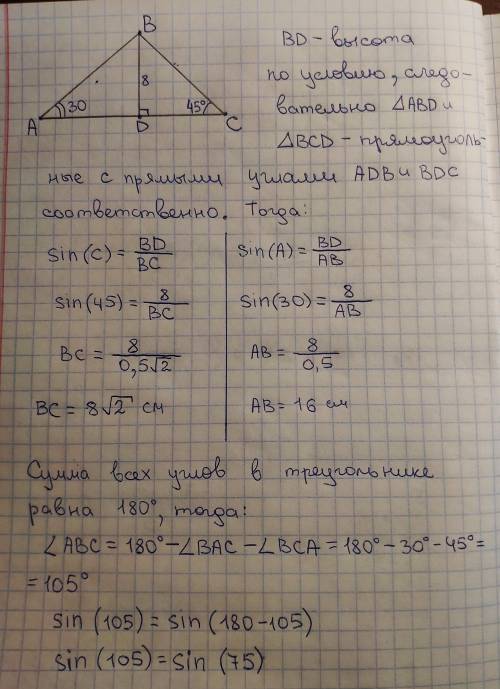 B
BD – высота
8
по условию, следо-
30
45°
вательно △ABD и
A
D
C
△BCD – прямоуголь-
ные с прямыми углами ADB и BDC
соответственно. Тогда:
sin(C) = BD/BC
sin(A) = BD/AB
sin(45) = 8/BC
sin(30) = 8/AB
BC = 8/0,5√2
AB = 8/0,5
BC = 8√2 см
AB = 16 см
Сумма всех углов в треугольнике
равна 180°, тогда:
∠ABC = 180° – ∠BAC – ∠BCA = 180° – 30° – 45° =
= 105°
sin (105) = sin (180-105)
sin (105) = sin (75)